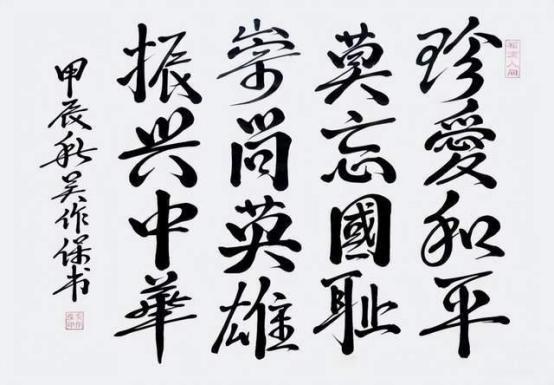 珍愛和平
莫忘國耻
崇尚英雄
振兴中華
甲辰秋吴作保书